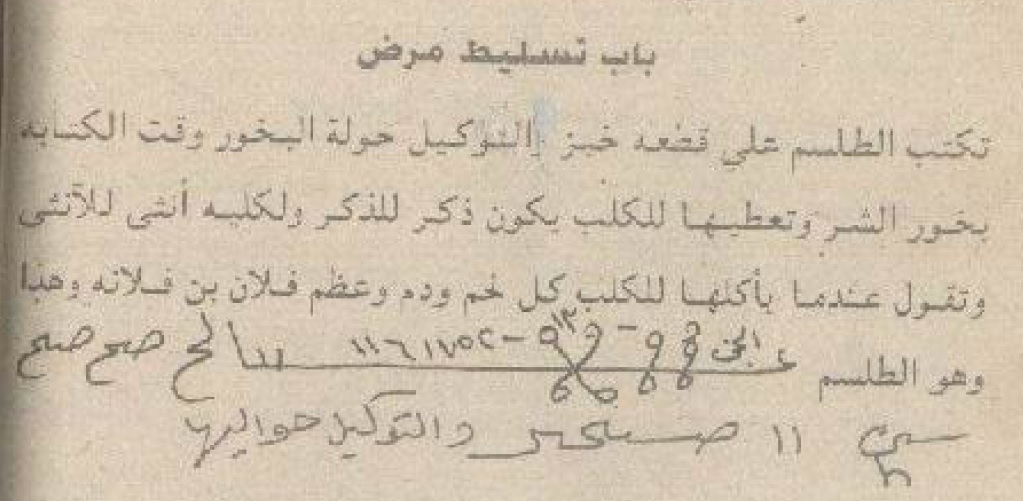 باب تسليط مرض
تكتب الطلسم علي قطعه خبز والتوكيل حولة البخور وقت الكتابه
بخور الشر وتعطيها للكلب يكون ذكر للذكر ولكلبه أنثى للآنثى
وتقول عندما يأكلها للكلب كل لحم ودم وعظم فلان بن فلانه وهذا
وهو الطلسم صح صح
١١ والتوكيل حواليها